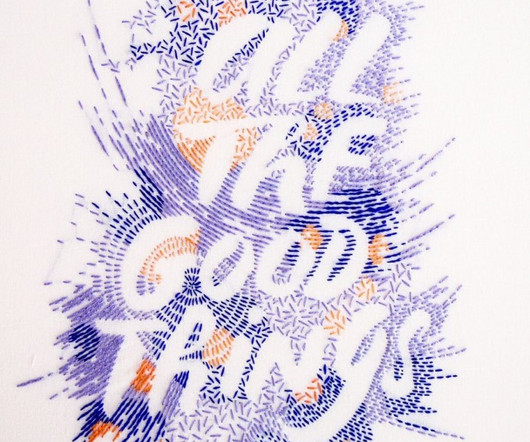 all
THE
GOOD
THINGS